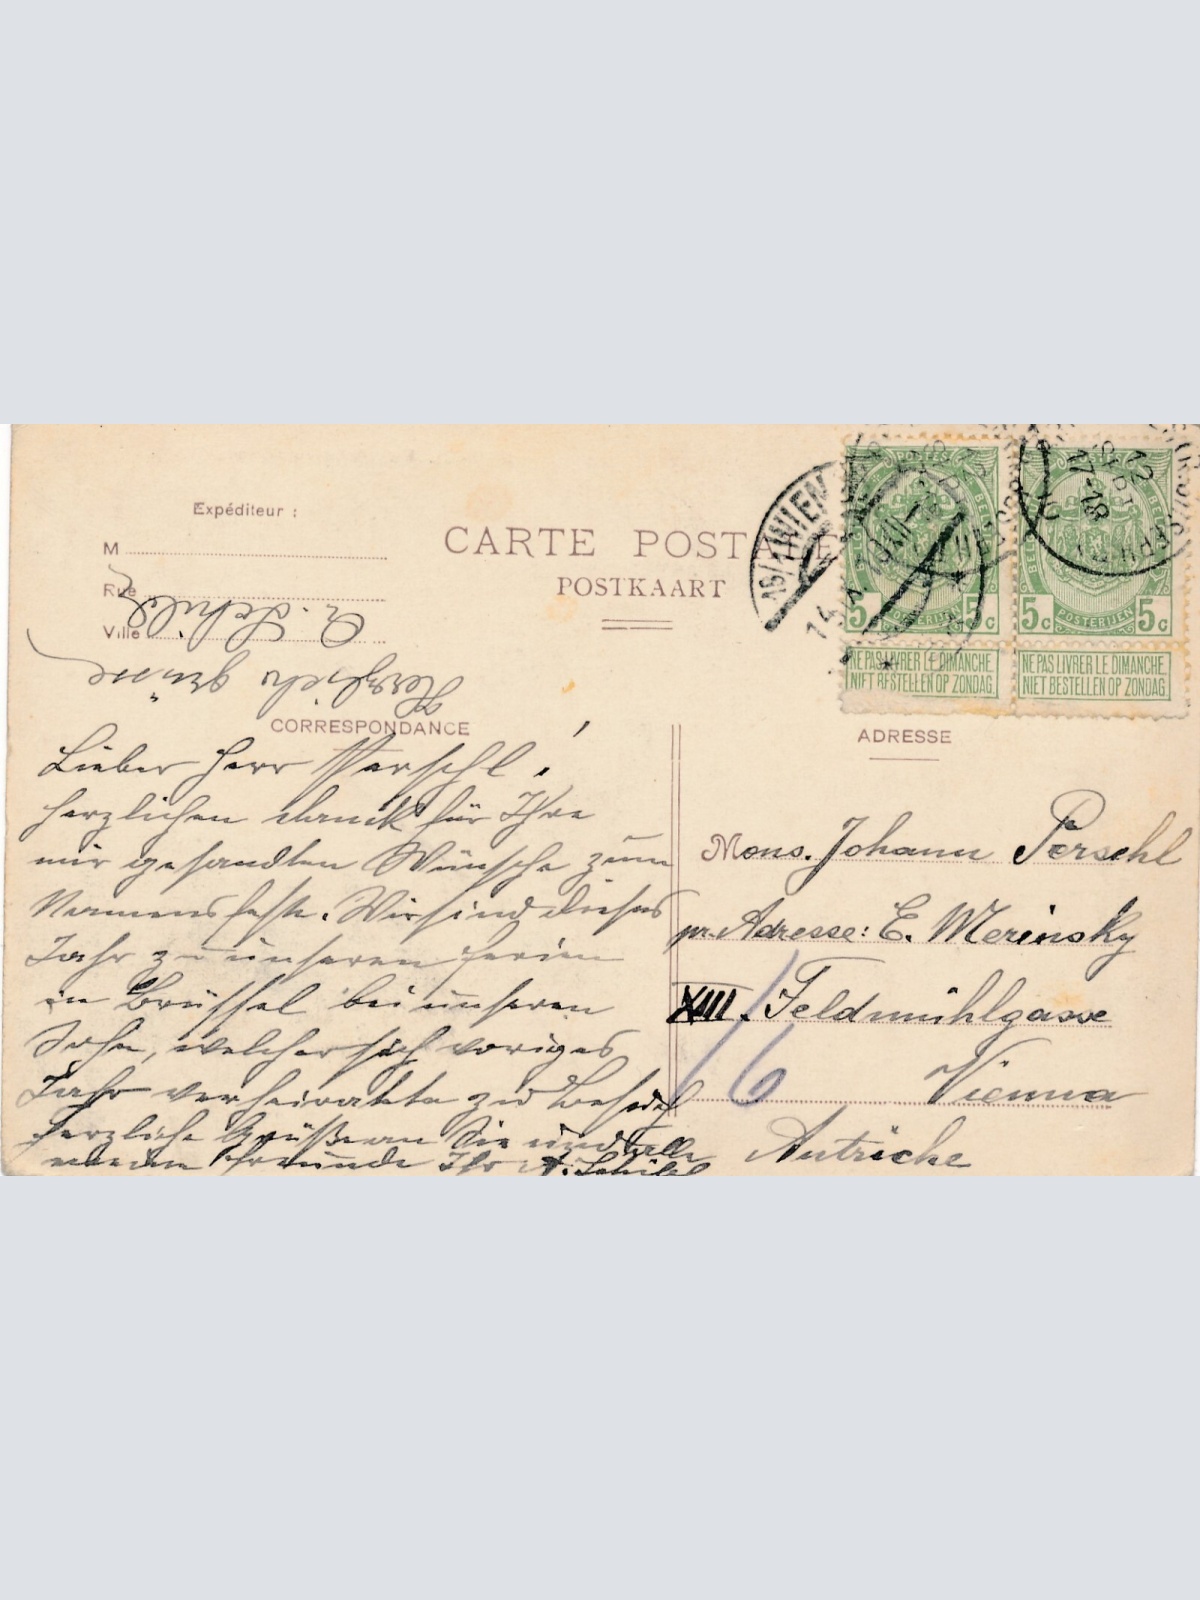 Expéditeur :
M
Rue
Ville
Herzliche Grüsse
CARTE POSTALE
POSTKAART
16/1 WIEN
14. X
12
SEPT
17-18
10
POSTES
POSTERIJEN
5c 5c
NE PAS LIVRER LE DIMANCHE
NIET BESTELLEN OP ZONDAG
POSTES
POSTERIJEN
5c 5c
NE PAS LIVRER LE DIMANCHE
NIET BESTELLEN OP ZONDAG
CORRESPONDANCE
Lieber Herr Perschl!
herzlichen Dank für Ihre
mir gesandten Wünsche zum
Namensfeste. Wir sind dieses
Jahr zu unseren Ferien
in Brüssel bei unseren
Sohn, welcher sich voriges
Jahr verheiratete zu Besuch
herzliche Grüße an Sie und alle
meine Freunde Ihr A. Schiller
ADRESSE
Mons. Johann Perschl
pr. Adresse: E. Merinsky
XIII. Feldmühlgasse
16
Vienna
Autriche